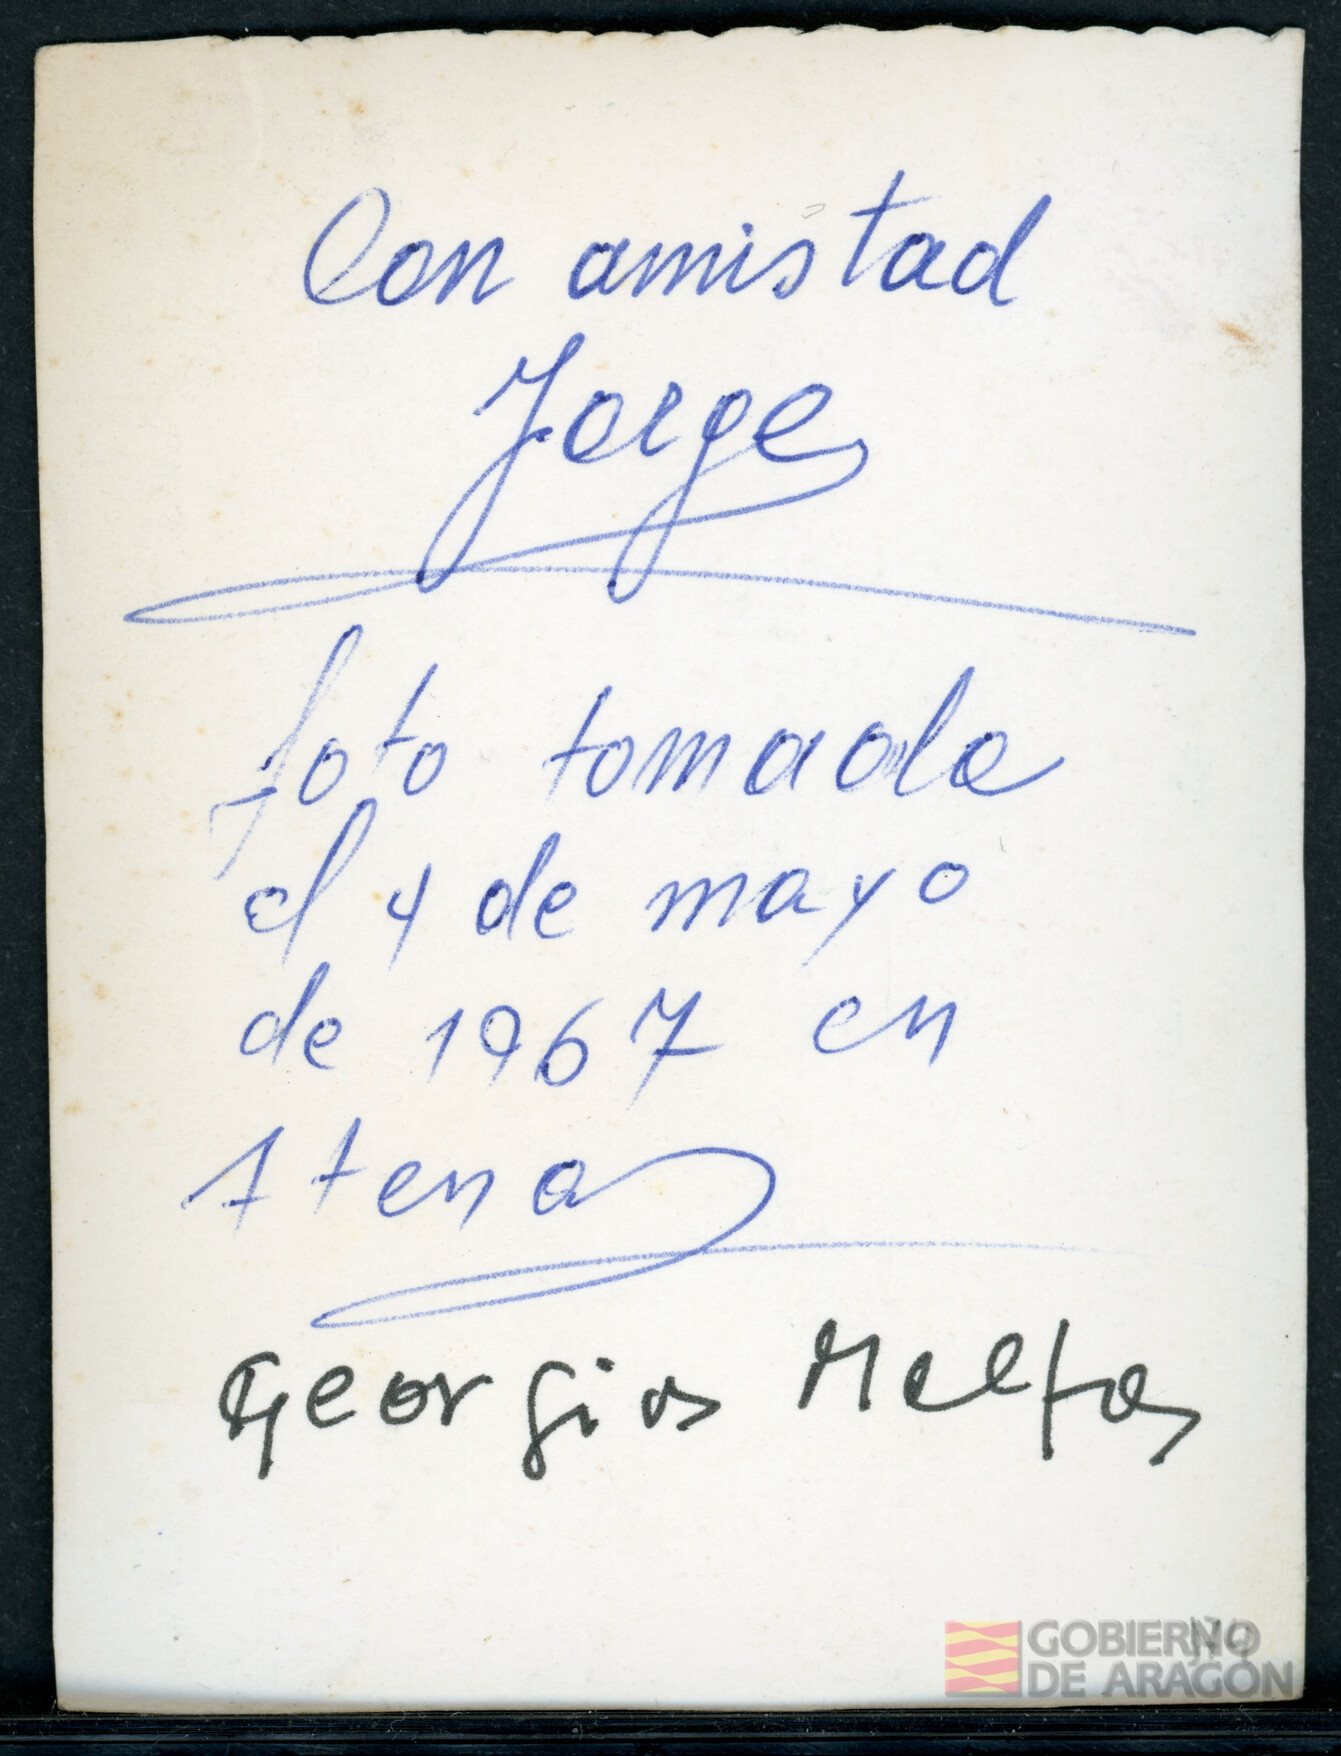 Con amistad
Jorge
foto tomada
el 4 de mayo
de 1967 en
Atenas
Georgios
GOBIERNO
DE ARAGÓN